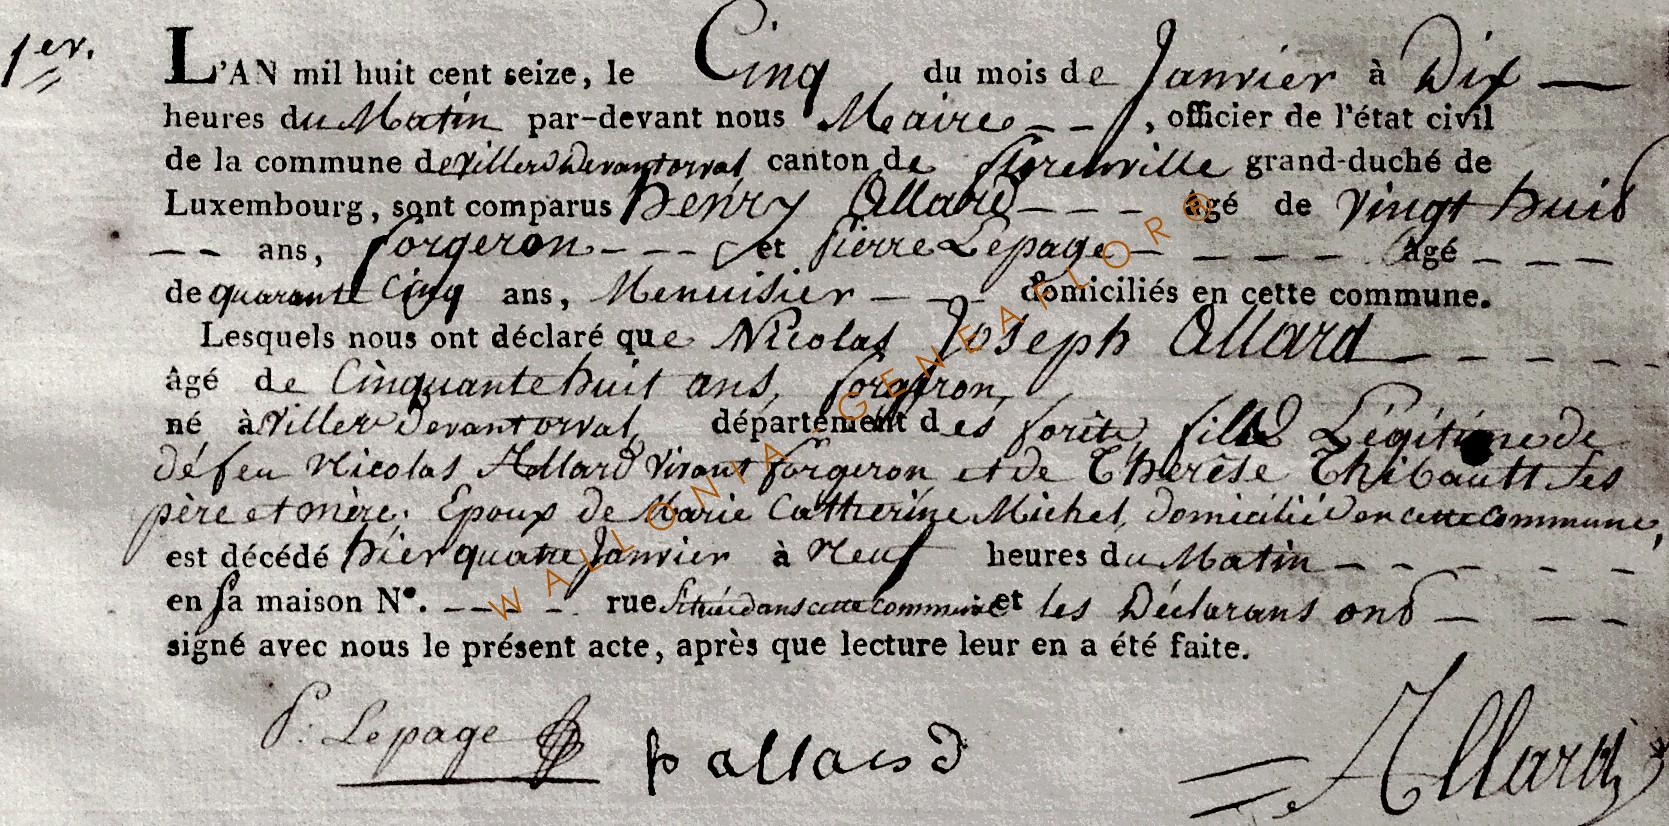 1er.
L'AN mil huit cent seize, le Cinq du mois de Janvier à Dix —
heures du Matin par-devant nous Maire - - , officier de l'état civil
de la commune de Villers devant orval canton de florenville grand-duché de
Luxembourg, sont comparus henry Allard - - - âgé de Vingt huit
- - ans, forgeron - - - et pierre Lepage - - - - - âgé - - -
de quarante Cinq ans, Menuisier - - - domiciliés en cette commune.
Lesquels nous ont déclaré que Nicolas Joseph Allard - - - - -
âgé de Cinquante huit ans, forgeron,
né à Viller devant orval, département des forêts, fils Légitime de
défeu Nicolas Allard vivant forgeron et de Therèse Thibault ses
père et mère; Epoux de Marie Catherine Michel, domicilié en cette commune,
est décédé hier quatre Janvier à Neuf heures du Matin - - - - - -
en sa maison N°. - - - rue Située dans cette commune et les Déclarans ont - - -
signé avec nous le présent acte, après que lecture leur en a été faite.
P: Lepage allard Allard
WALLONIA-GENEAFLORB